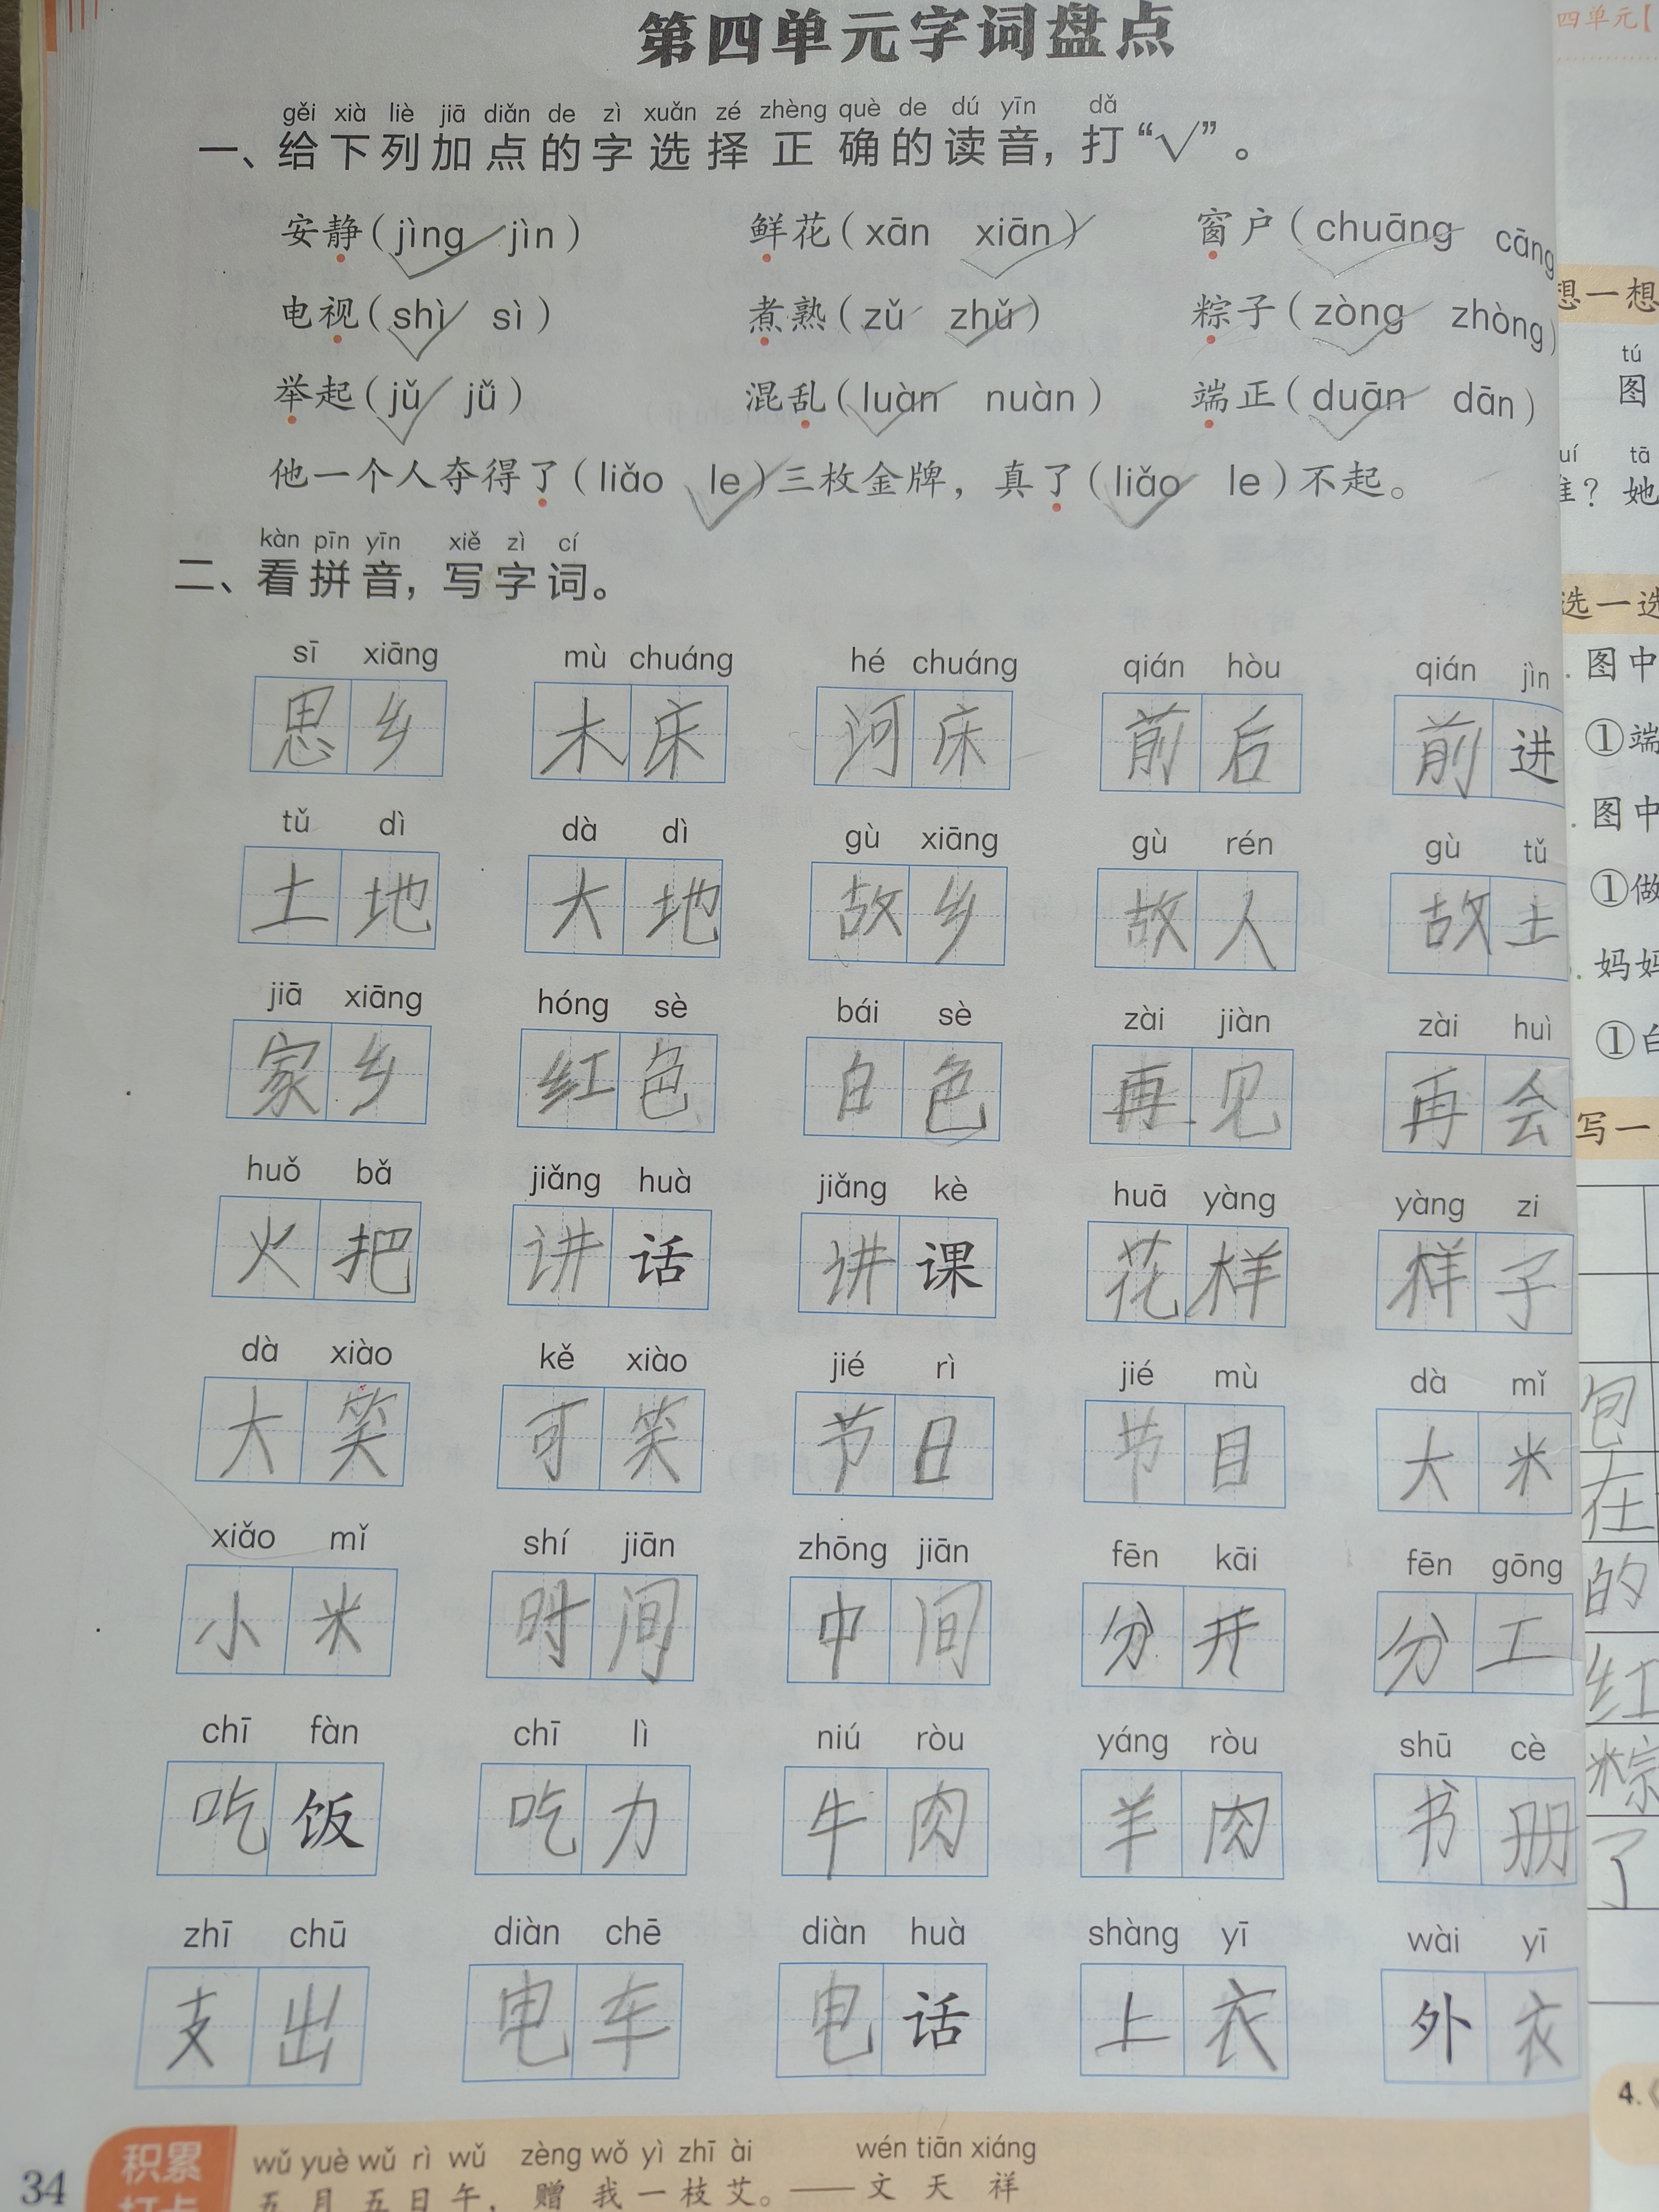 第四单元字词盘点
gěi xià liè jiā diǎn de zì xuǎn zé zhèng què de dú yīn dǎ
一、给下列加点的字选择正确的读音，打“√”。
安静（jìng√ jìn） 鲜花（xān xiān√） 窗户（chuāng√ cāng
电视（shì√ sì） 煮熟（zǔ zhǔ√） 粽子（zòng√ zhòng）
举起（jǔ√ jǚ） 混乱（luàn√ nuàn） 端正（duān√ dān）
他一个人夺得了（liǎo le√）三枚金牌，真了（liǎo√ le）不起。
kàn pīn yīn xiě zì cí
二、看拼音，写字词。
sī xiāng mù chuáng hé chuáng qián hòu qián jìn
思乡 木床 河床 前后 前进
tǔ dì dà dì gù xiāng gù rén gù tǔ
土地 大地 故乡 故人 故土
jiā xiāng hóng sè bái sè zài jiàn zài huì
家乡 红色 白色 再见 再会
huǒ bǎ jiǎng huà jiǎng kè huā yàng yàng zi
火把 讲话 讲课 花样 样子
dà xiào kě xiào jié rì jié mù dà mǐ
大笑 可笑 节日 节目 大米
xiǎo mǐ shí jiān zhōng jiān fēn kāi fēn gōng
小米 时间 中间 分开 分工
chī fàn chī lì niú ròu yáng ròu shū cè
吃饭 吃力 牛肉 羊肉 书册
zhī chū diàn chē diàn huà shàng yī wài yī
支出 电车 电话 上衣 外衣
34
积累
wǔ yuè wǔ rì wǔ zèng wǒ yì zhī ài wén tiān xiáng
五月五日午，赠我一枝艾。——文天祥
四单元【
想一想
tú
图
tā
？她
选一选
图中
①端
图中
①做
妈妈
①白
写一
包
在
的
红
粽
了
4.《